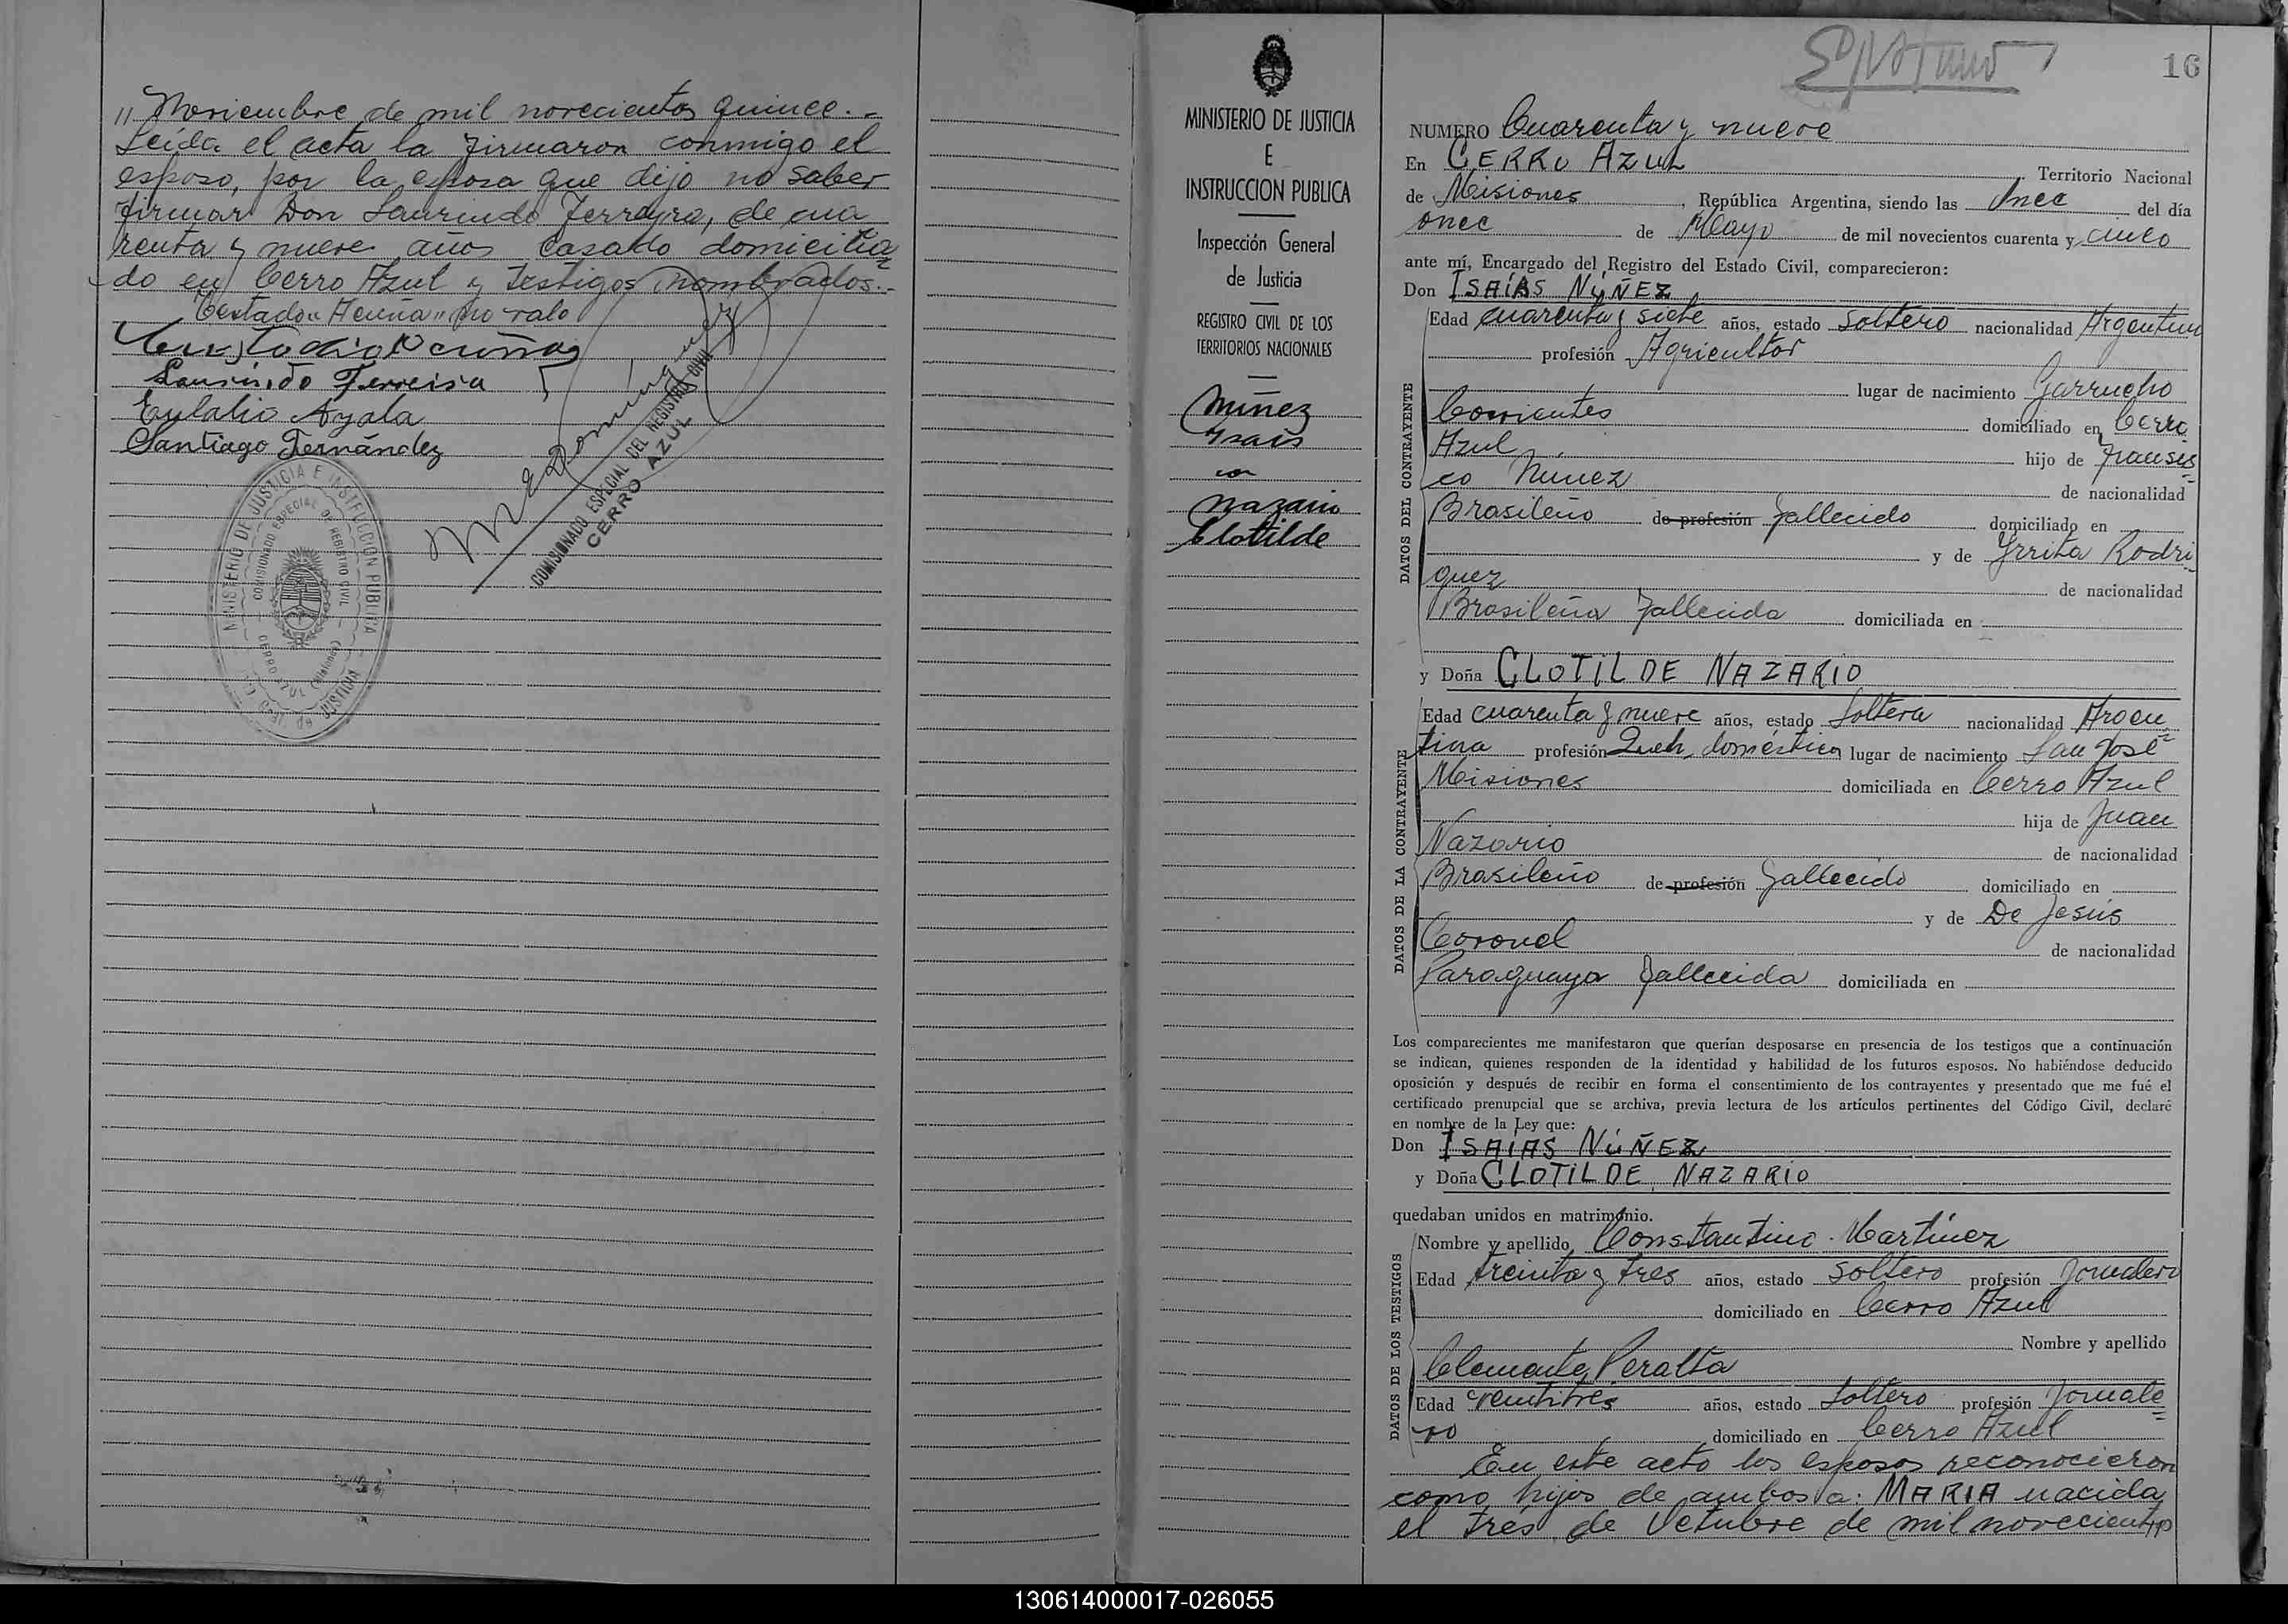 " Noviembre de mil novecientos quince.-
Leída el acta la firmaron conmigo el
esposo, por la esposa que dijo no saber
firmar Don Laurindo Ferreyra, de cua
renta y nueve años casado domicilia
do en Cerro Azul y testigos nombrados.-
Testado "Acuña" no vale
Laurindo Ferreira
Eulalio Ayala
Santiago Fernández
COMISIONADO ESPECIAL DEL REGISTRO CIVIL
CERRO AZUL
MINISTERIO DE JUSTICIA E INSTRUCCION PUBLICA
COMISIONADO ESPECIAL DE REGISTRO CIVIL
CERRO AZUL (Misiones)
MINISTERIO DE JUSTICIA
E
INSTRUCCION PUBLICA
Inspección General
de Justicia
REGISTRO CIVIL DE LOS
TERRITORIOS NACIONALES
Núñez
Isaís
con
Nazario
Clotilde
16
NUMERO Cuarenta y nueve
En CERRO AZUL Territorio Nacional
de Misiones, República Argentina, siendo las Once del día
once de Mayo de mil novecientos cuarenta y cinco
ante mí, Encargado del Registro del Estado Civil, comparecieron:
Don ISAÍAS NÚÑEZ
DATOS DEL CONTRAYENTE
Edad cuarenta y siete años, estado Soltero nacionalidad Argentino
profesión Agricultor
lugar de nacimiento Garrucho
Corrientes domiciliado en Cerro
Azul hijo de Fransis
co Núñez de nacionalidad
Brasileño de profesión fallecido domiciliado en
y de Yrrita Rodri
guez de nacionalidad
Brasileña fallecida domiciliada en
y Doña CLOTILDE NAZARIO
DATOS DE LA CONTRAYENTE
Edad cuarenta y nueve años, estado Soltera nacionalidad Argen
tina profesión Queh. doméstico lugar de nacimiento San José
Misiones domiciliada en Cerro Azul
hija de Juan
Nazario de nacionalidad
Brasileño de profesión fallecido domiciliado en
y de De Jesús
Coronel de nacionalidad
Paraguaya fallecida domiciliada en
Los comparecientes me manifestaron que querían desposarse en presencia de los testigos que a continuación
se indican, quienes responden de la identidad y habilidad de los futuros esposos. No habiéndose deducido
oposición y después de recibir en forma el consentimiento de los contrayentes y presentado que me fué el
certificado prenupcial que se archiva, previa lectura de los artículos pertinentes del Código Civil, declaré
en nombre de la Ley que:
Don ISAÍAS NÚÑEZ
y Doña CLOTILDE NAZARIO
quedaban unidos en matrimonio.
DATOS DE LOS TESTIGOS
Nombre y apellido Constantino Martínez
Edad treinta y tres años, estado soltero profesión Jornalero
domiciliado en Cerro Azul
Nombre y apellido
Clemente Peralta
Edad veintitrés años, estado Soltero profesión Jornale
ro domiciliado en Cerro Azul
En este acto los esposos reconocieron
como hijos de ambos a: MARIA nacida
el tres de Octubre de mil novecientos
130614000017-026055